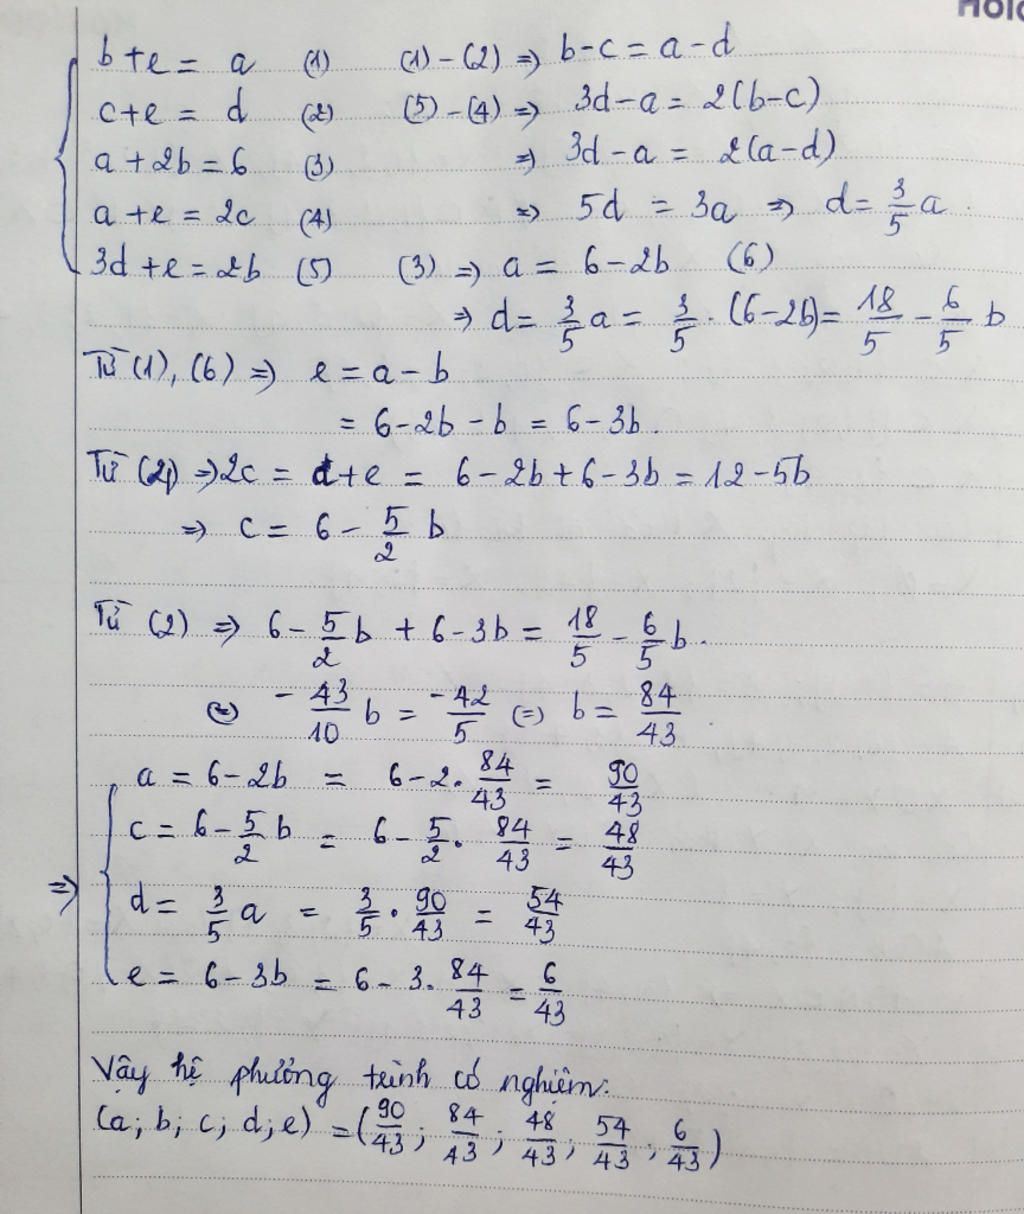 b + e = a (1) (1) - (2) => b - c = a - d
c + e = d (2) (5) - (4) => 3d - a = 2(b - c)
a + 2b = 6 (3) => 3d - a = 2(a - d)
a + e = 2c (4) => 5d = 3a => d = 3/5 a.
3d + e = 2b (5) (3) => a = 6 - 2b (6)
=> d = 3/5 a = 3/5 . (6 - 2b) = 18/5 - 6/5 b
Từ (1), (6) => e = a - b
= 6 - 2b - b = 6 - 3b.
Từ (2) => 2c = d + e = 6 - 2b + 6 - 3b = 12 - 5b
=> c = 6 - 5/2 b
Từ (2) => 6 - 5/2 b + 6 - 3b = 18/5 - 6/5 b.
(=) -43/10 b = -42/5 (=) b = 84/43.
a = 6 - 2b = 6 - 2. 84/43 = 90/43
c = 6 - 5/2 b = 6 - 5/2 . 84/43 = 48/43
=> d = 3/5 a = 3/5 . 90/43 = 54/43
e = 6 - 3b = 6 - 3. 84/43 = 6/43
Vậy hệ phương trình có nghiệm:
(a; b; c; d; e) = (90/43; 84/43; 48/43; 54/43; 6/43)